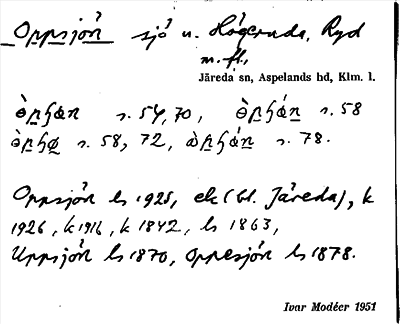 Oppsjön sjö u. Högeruda, Ryd
m. fl.,
Järeda sn, Aspelands hd, Klm. l.
s. 54, 70, s. 58
s. 58, 72, s. 78.
Oppsjön ls 1925, ek (bl. Järeda), k
1926, k 1916, k 1842, ls 1863,
Uppsjön ls 1870, Oppesjön ls 1878.
Ivar Modéer 1951